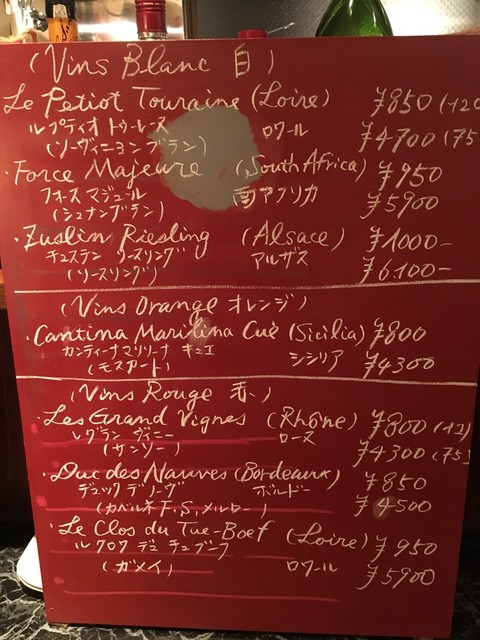 (Vins Blanc 白)
Le Petiot Touraine (Loire) ¥850 (120
ルプティオ トゥレーヌ ロワール ¥4700 (75
(ソーヴィニヨンブラン)
・Force Majeure (South Africa) ¥950
フォースマジュール 南アフリカ ¥5900
(シュナンブラン)
・Zuslin Riesling (Alsace) ¥1000-
チュスラン リースリング アルザス
(リースリング) ¥6100-
(Vins Orange オレンジ)
・Cantina Marilina Cuè (Sicilia) ¥800
カンティーナマリリーナ キュエ シシリア ¥4300
(モスアート)
(Vins Rouge 赤)
・Les Grand Vignes (Rhône) ¥800 (12)
レグラン ヴィニー ローヌ ¥4300 (75)
(サンソー)
・Duc des Nauves (Bordeaux) ¥850
デュック デ ノーヴ ボルドー ¥4500
(カベルネF,S,メルロー)
・Le Clos du Tue-Boef (Loire) ¥950
ル クロウ デュ チュブーフ
(ガメイ) ロワール ¥5900